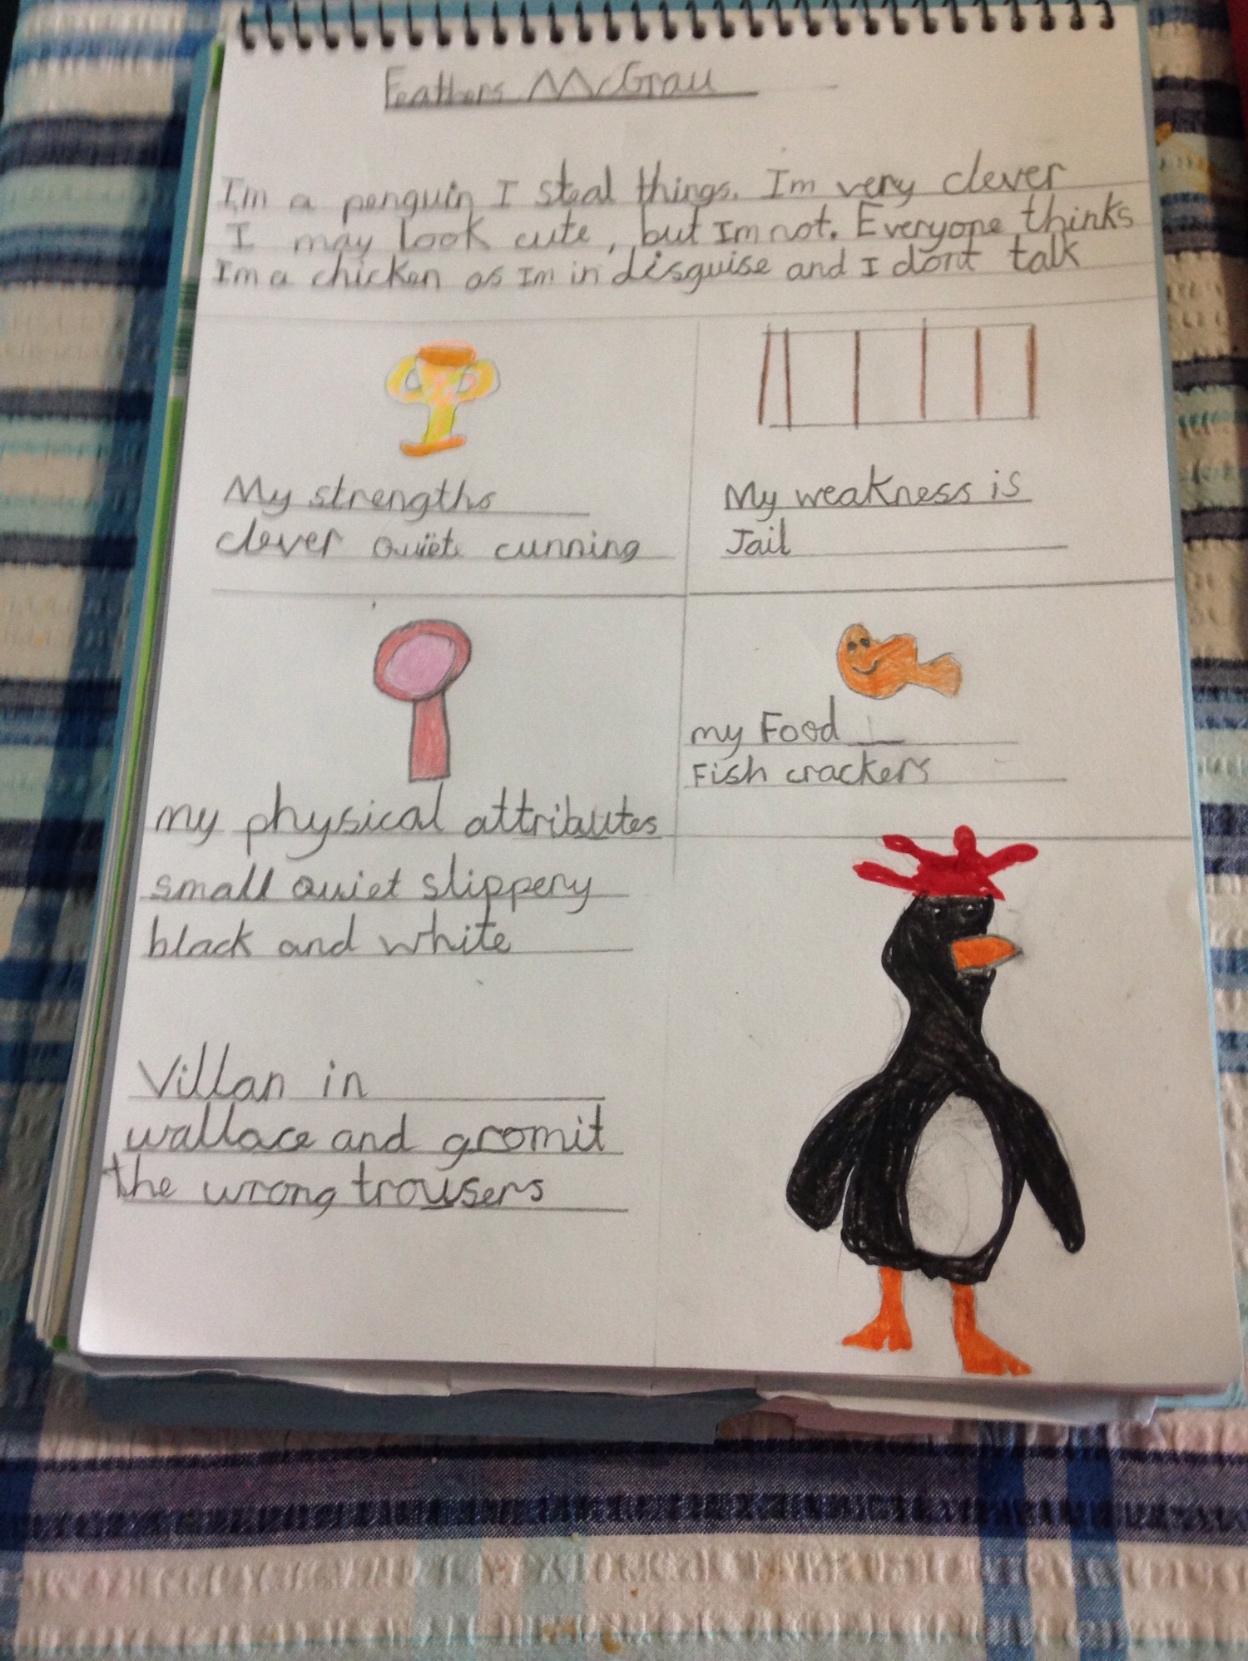 Feathers McGrau
I'm a penguin I steal things. Im very clever
I may look cute, but Im not. Everyone thinks
Im a chicken as Im in disguise and I dont talk
My strengths
clever quiet cunning
My weakness is
Jail
my Food
Fish crackers
my physical attributes
small quiet slippery
black and white
Villan in
wallace and gromit
the wrong trousers